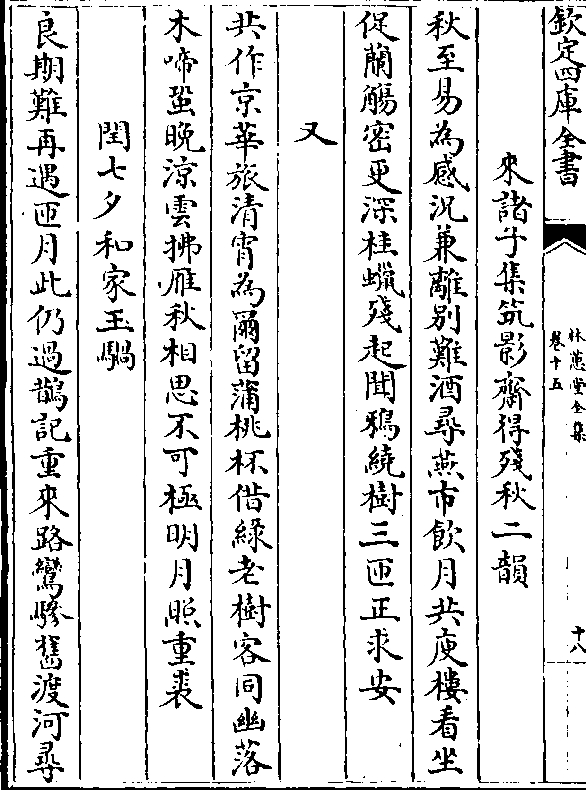 欽定四庫全書
林蕙堂全集
卷十五
十八
來諸子集筑影齋得殘秋二韻
秋至易為感況兼離別難酒尋燕市飲月共庾樓看坐
促蘭觴密更深桂蠟殘起聞鴉繞樹三匝正求安
又
共作京華旅清宵為爾留蒲桃杯借綠老樹客同幽落
木啼蛩晚涼雲拂雁秋相思不可極明月照重裘
閏七夕和家玉騧
良期難再遇匝月此仍過鵲記重來路鸞驂舊渡河尋